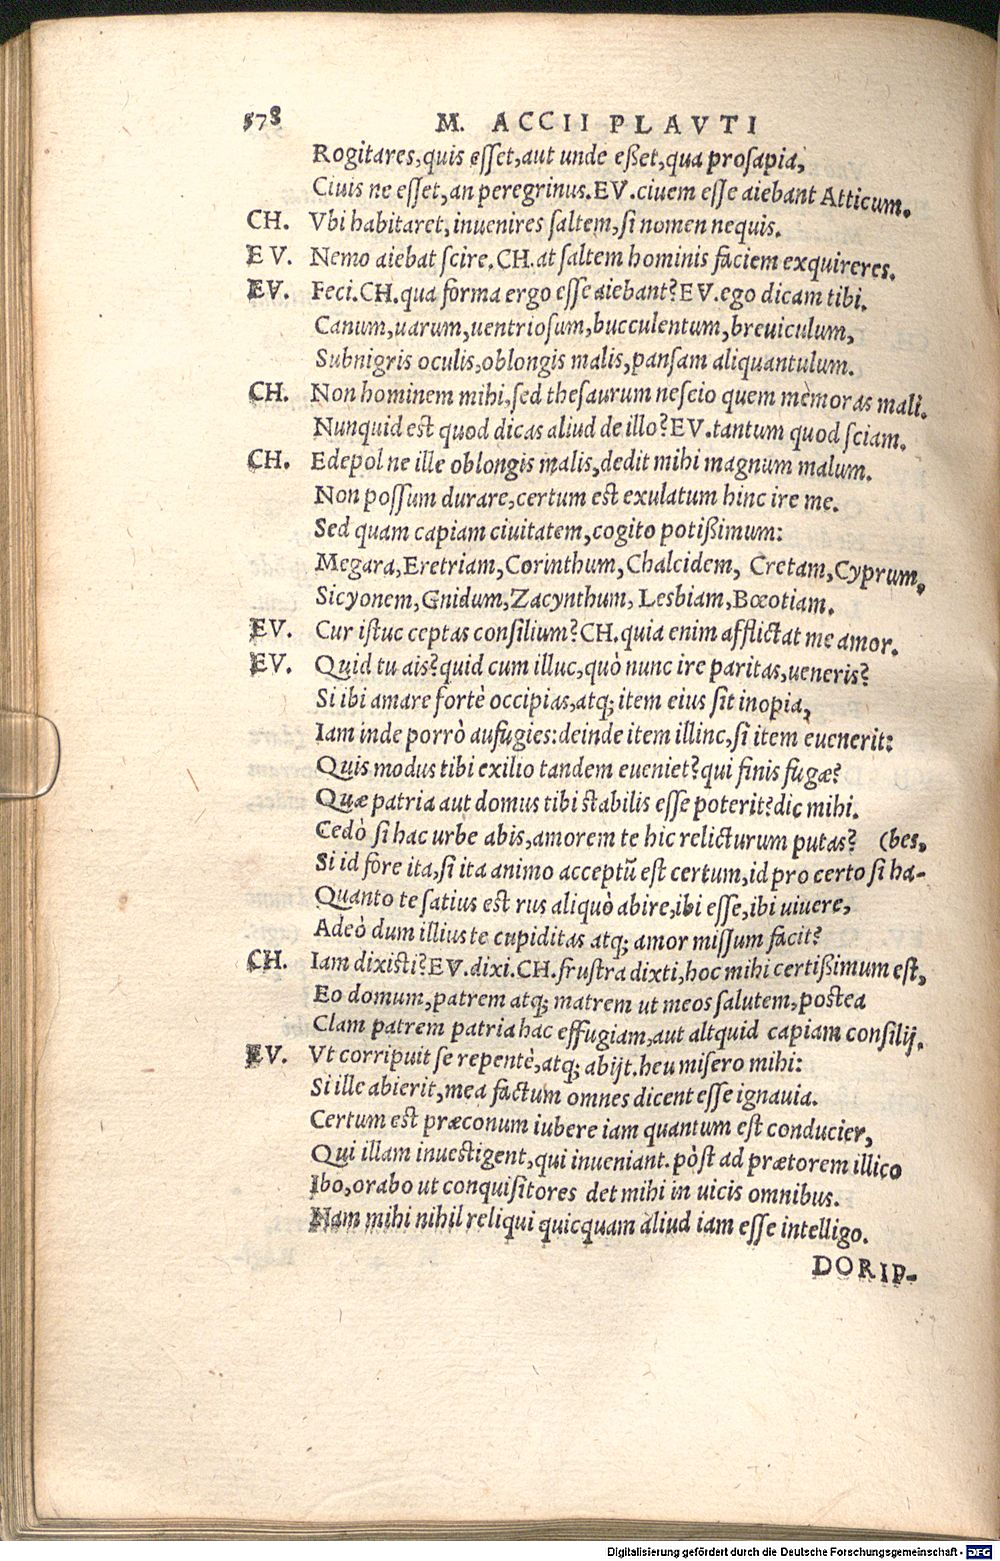 578 M. ACCII PLAVTI
Rogitares,quis esset,aut unde eßet,qua prosapia,
Ciuis ne esset,an peregrinus.EV.ciuem esse aiebant Atticum.
CH. Vbi habitaret,inuenires saltem,si nomen nequis.
EV. Nemo aiebat scire.CH.at saltem hominis faciem exquireres.
EV. Feci.CH.qua forma ergo esse aiebant?EV.ego dicam tibi.
Canum,uarum,uentriosum,bucculentum,breuiculum,
Subnigris oculis,oblongis malis,pansam aliquantulum.
CH. Non hominem mihi,sed thesaurum nescio quem mèmoras mali.
Nunquid est quod dicas aliud de illo?EV.tantum quod sciam.
CH. Edepol ne ille oblongis malis,dedit mihi magnum malum.
Non possum durare,certum est exulatum hinc ire me.
Sed quam capiam ciuitatem,cogito potißimum:
Megara,Eretriam,Corinthum,Chalcidem, Cretam,Cyprum,
Sicyonem,Gnidum,Zacynthum, Lesbiam,Bœotiam.
EV. Cur istuc ceptas consilium?CH.quia enim afflictat me amor.
EV. Quid tu ais?quid cum illuc,quò nunc ire paritas,ueneris?
Si ibi amare fortè occipias,atq; item eius sit inopia,
Iam inde porrò aufugies:deinde item illinc,si item euenerit:
Quis modus tibi exilio tandem eueniet?qui finis fugæ?
Quæ patria aut domus tibi stabilis esse poterit?dic mihi.
Cedò si hac urbe abis,amorem te hic relicturum putas? (bes,
Si id fore ita,si ita animo acceptũ est certum,id pro certo si ha-
Quanto te satius est rus aliquò abire,ibi esse,ibi uiuere,
Adeò dum illius te cupiditas atq; amor missum facit?
CH. Iam dixisti?EV.dixi.CH.frustra dixti,hoc mihi certißimum est,
Eo domum,patrem atq; matrem ut meos salutem,postea
Clam patrem patria hac effugiam,aut altquid capiam consilij.
EV. Vt corripuit se repentè,atq; abijt.heu misero mihi:
Si ille abierit,mea factum omnes dicent esse ignauia.
Certum est præconum iubere iam quantum est conducier,
Qui illam inuestigent,qui inueniant.pòst ad prætorem illico
Ibo,orabo ut conquisitores det mihi in uicis omnibus.
Nam mihi nihil reliqui quicquam aliud iam esse intelligo.
DORIP-
Digitalisierung gefördert durch die Deutsche Forschungsgemeinschaft - DFG